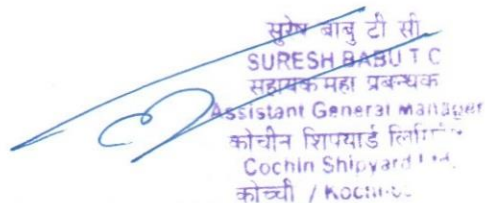 सुरेष बाबु टी सी
SURESH BABU T C
सहायक महा प्रबन्धक
Assistant General Manager
कोचीन शिपयार्ड
Cochin Shipyard
कोच्ची /